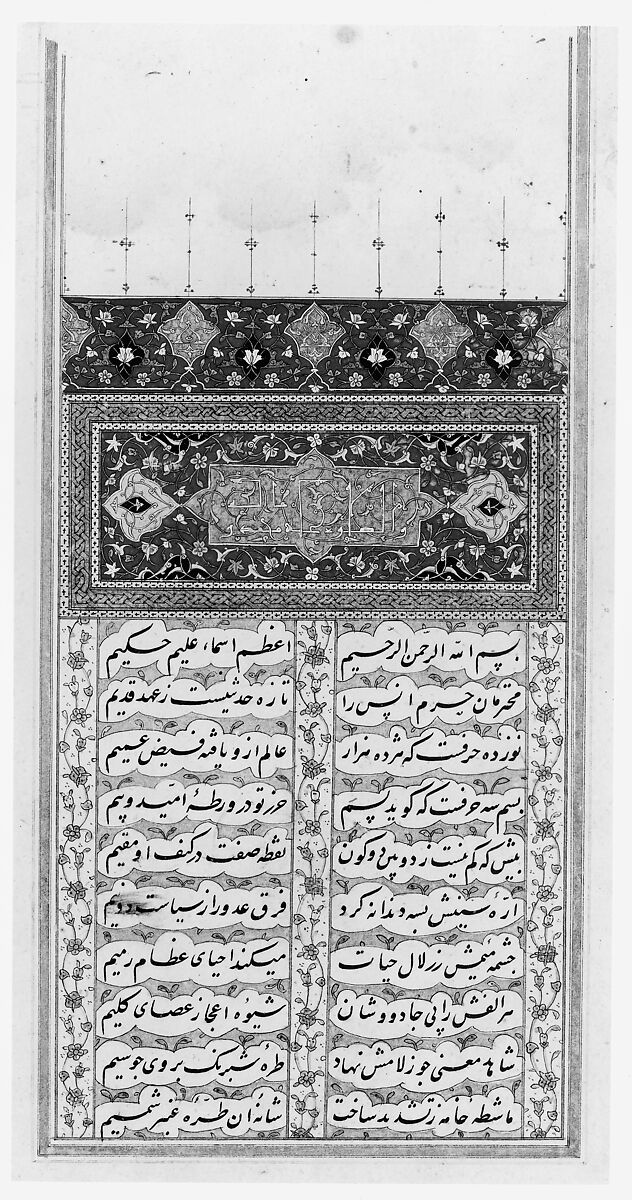 بسم الله الرحمن الرحیم اعظم اسماء علیم حکیم
محترمان حرم انس را تازه حدیثیست ز عهد قدیم
نوزده حرفست که هژده هزار عالم ازو یافته فیض عمیم
بسم سه حرفست که گوید بسم حرز تو در ورطهٔ امید و بیم
که کم نیست ز دو بین دو کون نقطه صفت در کنف او مقیم
ارهٔ سینش بسه دندانه کرد فرق عدو را ز سیاست دو نیم
چشمه میمش ز زلال حیات میکند احیای عظام رمیم
هر الفش را پی جادووشان شیوه اعجاز عصای کلیم
شاهد معنی چو ز لامش نهاد طره شبرنگ بروی چو سیم
ماشطه خامه ز تشدید ساخت شانه آن طره عنبر شمیم